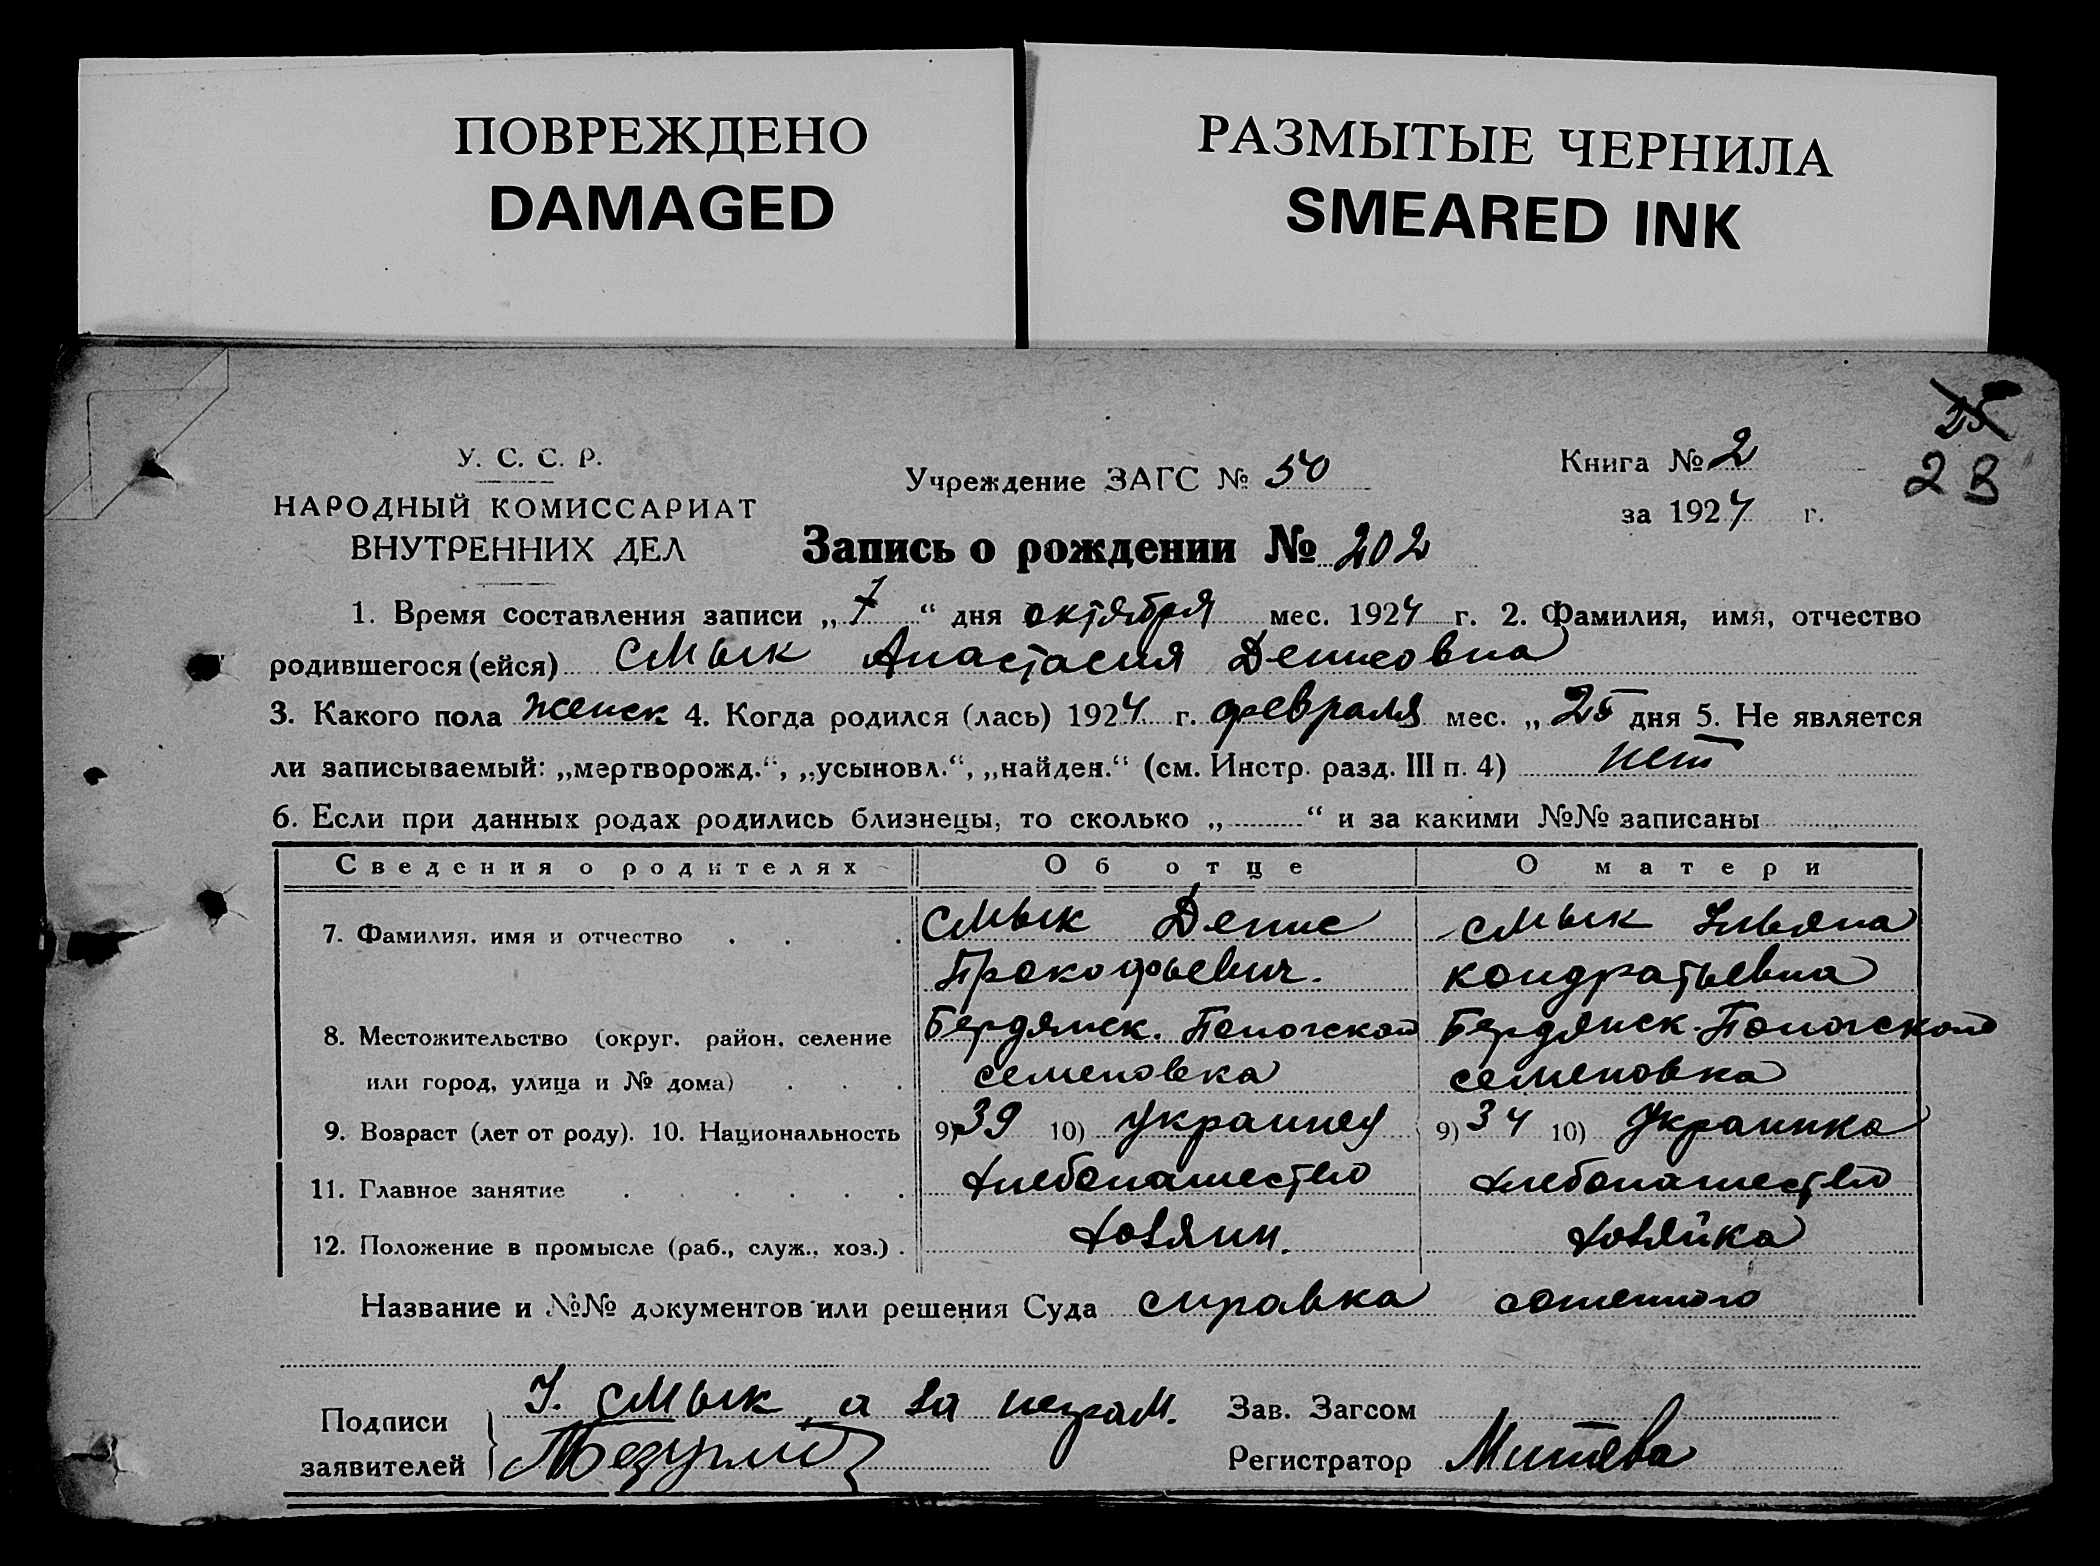 ПОВРЕЖДЕНО
DAMAGED
РАЗМЫТЫЕ ЧЕРНИЛА
SMEARED INK
25
28
У. С. С. Р.
НАРОДНЫЙ КОМИССАРИАТ
ВНУТРЕННИХ ДЕЛ
Учреждение ЗАГС № 50
Книга № 2
за 1924 г.
Запись о рождении № 202
1. Время составления записи „7“ дня октября мес. 1924 г. 2. Фамилия, имя, отчество
родившегося (ейся) Смык Анастасия Денисовна
3. Какого пола женск 4. Когда родился (лась) 1924 г. февраля мес. „25 дня 5. Не является
ли записываемый: „мертворожд.“, „усыновл.“, „найден.“ (см. Инстр. разд. III п. 4) нет
6. Если при данных родах родились близнецы, то сколько „ “ и за какими №№ записаны
Сведения о родителях Об отце О матери
7. Фамилия, имя и отчество Смык Денис Смык Ульяна
Прокофьевич. Кондратьевна
8. Местожительство (округ, район, селение Бердянск. Бердянск.
или город, улица и № дома) Семеновка Семеновка
9. Возраст (лет от роду). 10. Национальность 9) 39 10) Украинец 9) 34 10) Украинка
11. Главное занятие хлебопашество хлебопашество
12. Положение в промысле (раб., служ., хоз.) хозяин. хозяйка
Название и №№ документов или решения Суда справка сотенного
Подписи заявителей У. Смык а за неграм.
Зав. Загсом
Регистратор Митева